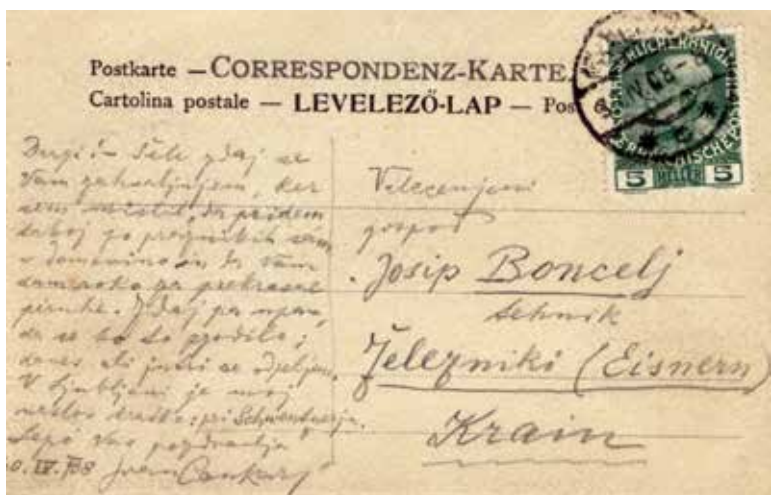 Postkarte — CORRESPONDENZ-KARTE.
Cartolina postale — LEVELEZŐ-LAP — Pos
5 HELLER 5
Dragi! — Šele zdaj se
Vam zahvaljujem, ker
sem mislil, da pridem
takoj po praznikih sam
v domovino in da Vam
piruhe. Zdaj pa upam,
da se bo to zgodilo;
danes ali jutri se odpeljem.
V Ljubljani je moj
naslov kratko: pri Schwentnerju.
Lepo Vas pozdravlja
IV. 08 Ivan Cankar
Velecenjeni
gospod
Josip Boncelj
tehnik
Železniki (Eisnern)
Krain